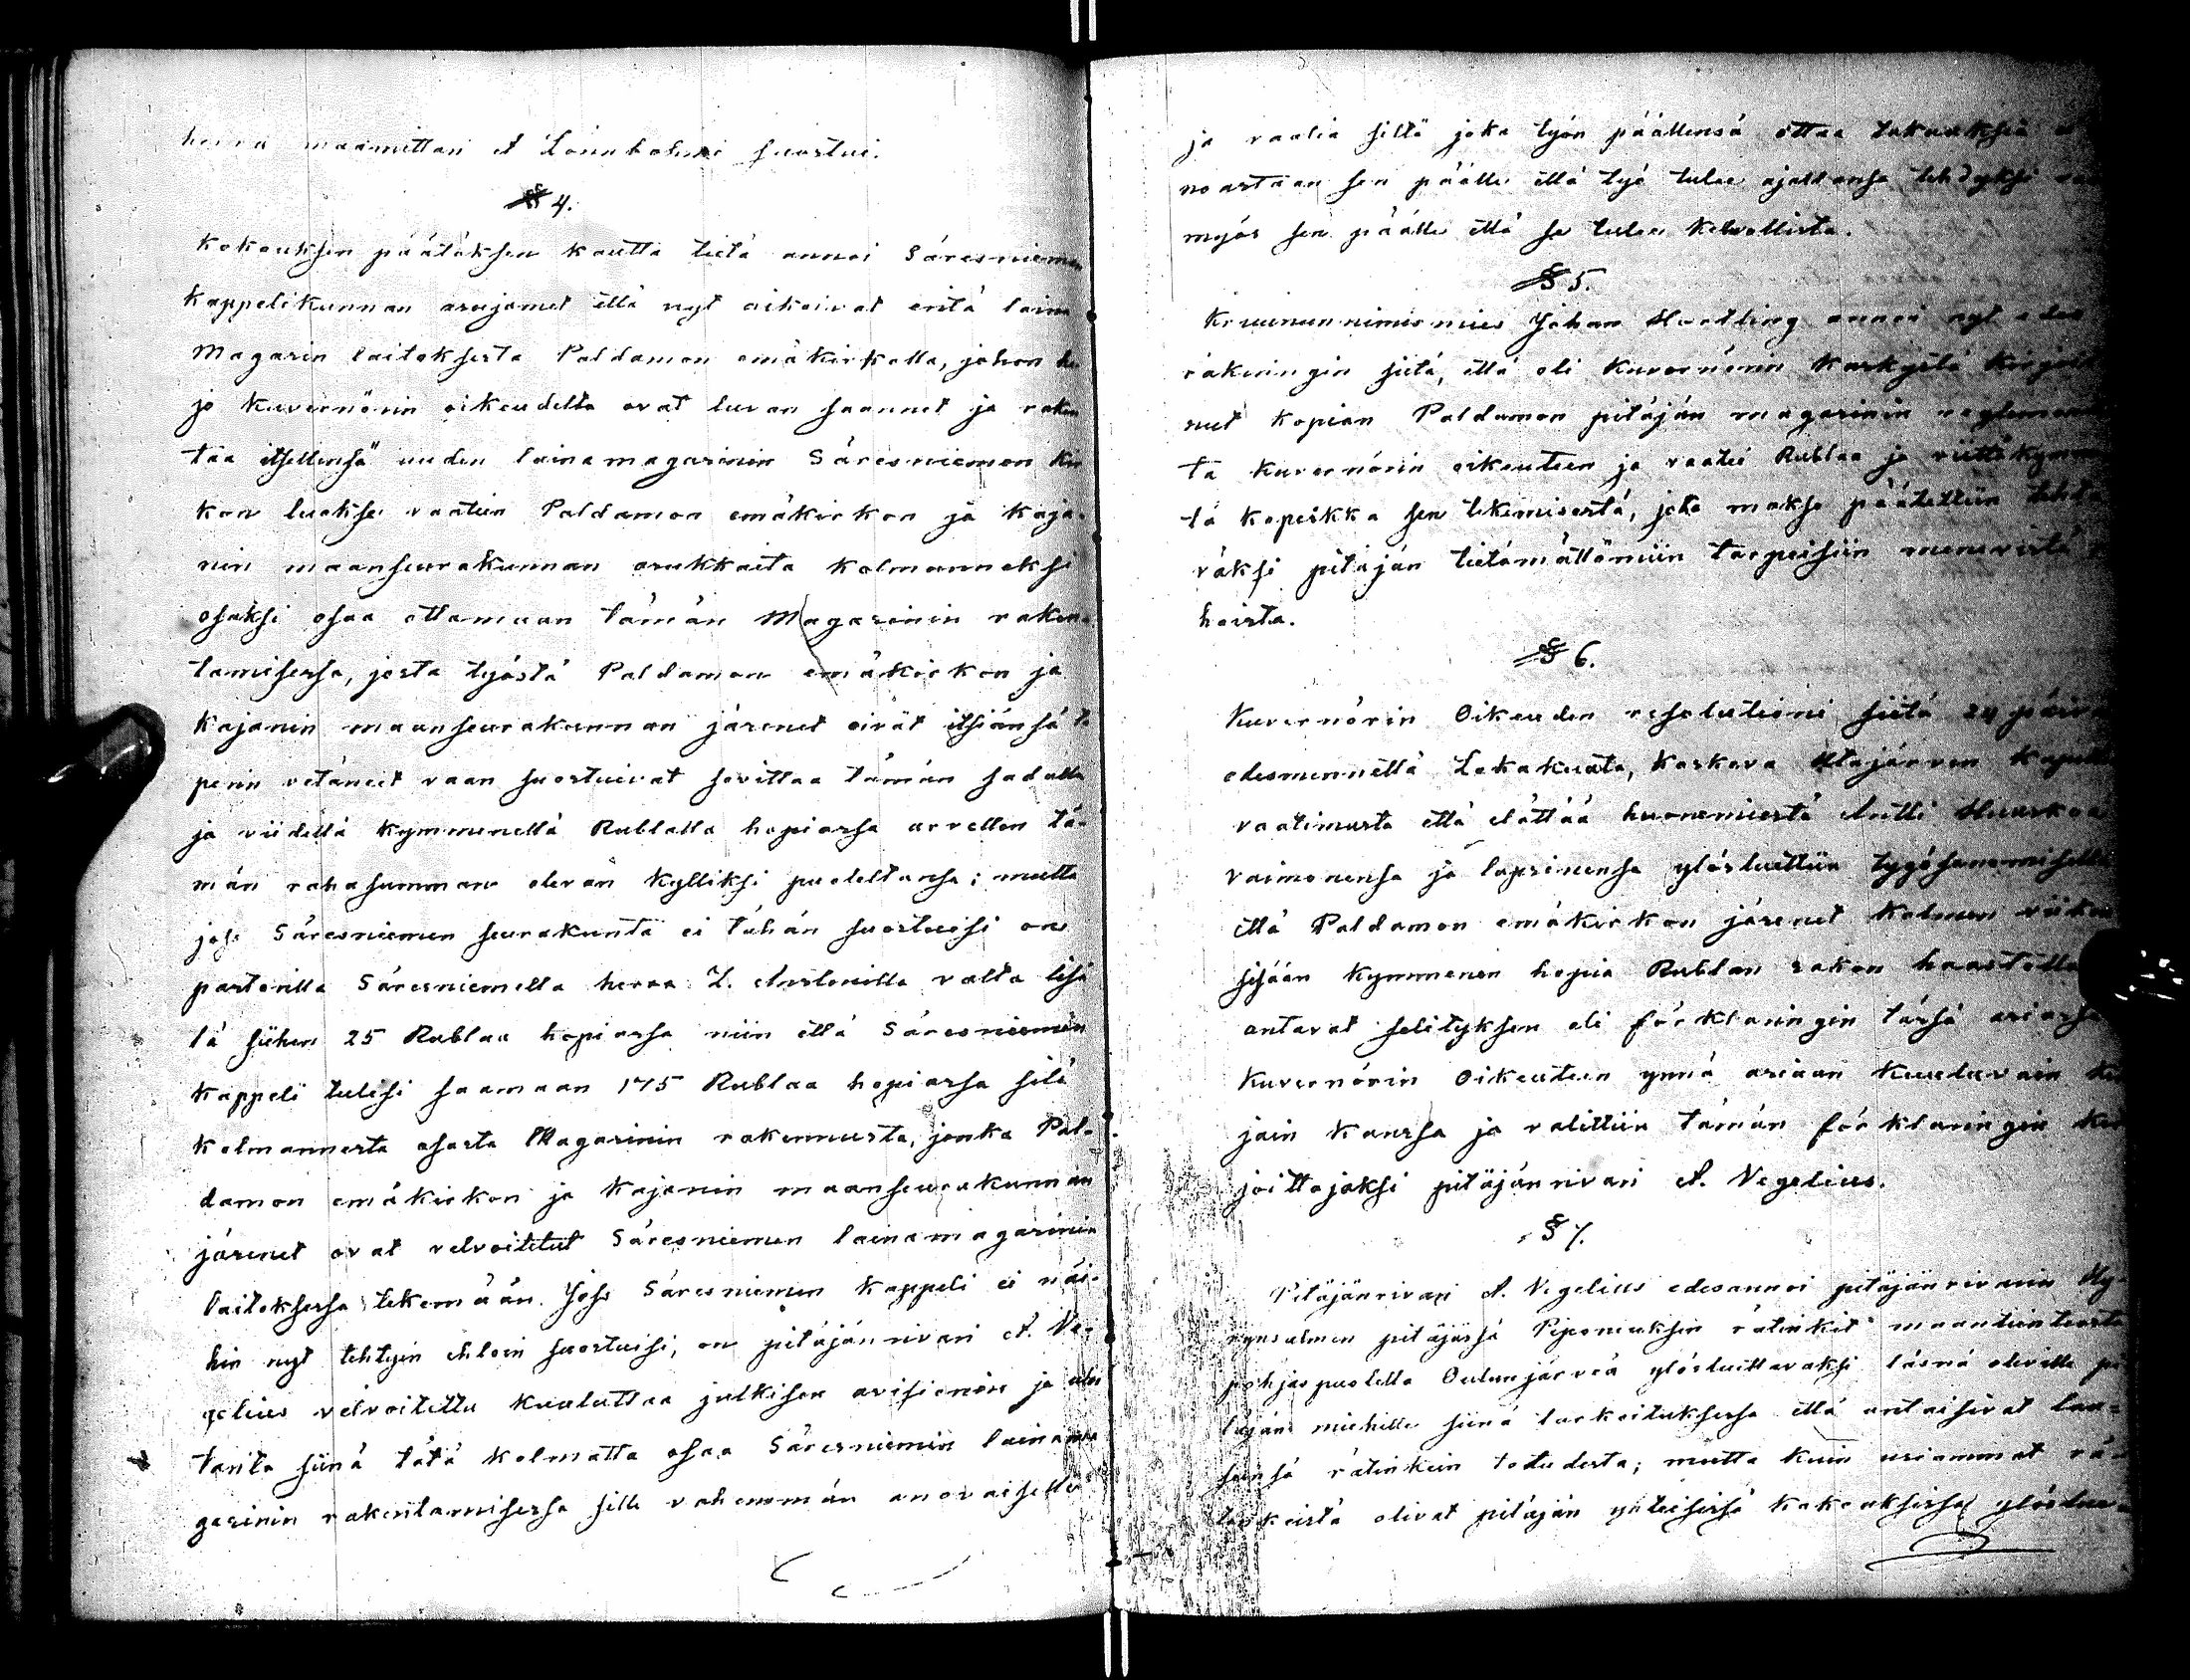 herra maamittari A Lönnbohmi suostui.
§ 4.
Kokouksen päätöksen kautta tietä annoi Säresniemen
kappelikunnan asujamet että nyt aikoivat eritä laina
Magasin laitoksesta Paldamon emäkirkolla, johon he
jo Kuvernörin oikeudelta ovat luvan saannet ja raken
taa itsellensä uuden lainamagasinin Säresniemen kir
kon luokse vaatein Paldamon emäkirkon ja Kaja-
nin maanseurakunnan asukkaita kolmanneksi
osaksi osaa ottamaan tämän Magasinin raken-
tamisessa, josta työstä Paldamon emäkirkon ja
Kajanin maanseurakunnan jäsenet eivät itsiänsä ta
perin vetäneet vaan suostuivat sovittaa tämän sadalla
ja viidellä kymmenellä Rublalla hopiassa arvellen tä-
män rahasumman olevan kylliksi puoleltansa; mutta
jos Säresniemen seurakunta ei tähän suostuisi on
pastorilla Säresniemellä herra Z. Asslenilla valta lisä
tä siihen 25 Rublaa hopiassa niin että Säresniemen
Kappeli tulisi saamaan 175 Rublaa hopiassa sitä
kolmannesta osasta Magasinin rakennusta, jonka Pal-
damon emäkirkon ja Kajanin maanseurakunnan
jäsenet ovat velvoitetut Säresniemen lainamagasinin
laitoksessa tekemään. Jos Säresniemen kappeli ei näi-
hin nyt tehtyin ehtoin suostuisi, on pitäjänrivari A. Ve-
gelius velvoitettu kuuluttaa julkisen avisionin ja ulos
tarita siinä tätä kolmatta osaa Säresniemen lainama
gasinin rakentamisessa sille vähemmän anovaiselle
ja vaatia siltä joka työn päällensä ottaa takauksia
noastaan sen päälle että työ tulee ajallansa tehdyksi
myös sen päälle että se tulee kelvollista.
§ 5.
Kruununnimismies Johan Hartling annoi nyt edes
räkningin siitä, että oli Kuvernörin käskystä kirjoit
nut kopian Paldamon pitäjän magasinin reglemen
ta Kuvernörin oikeuteen ja vaatei Rublaa ja viittäkymmen
tä kopeikka sen tekemisestä, joka makso päätettiin
väksi pitäjän tietämättömiin tarpeisiin menevistä
hoista.
§ 6.
Kuvernörin Oikeuden resolutioni siitä 24 päiv
edesmennellä Lokakuuta, koskeva Utajärven kapeli
vaatimusta että elättää huonemiestä Antti Huuskoa
vaimonensa ja lapsinensa ylösluettiin tygösanomisella
että Paldamon emäkirkon jäsenet kolmen viikon
sisään kymmenen hopia Rublan sakon haastolla
antavat selityksen eli förklaringin tässä asiassa
Kuvernörin Oikeuteen ynnä asiaan kuuluvain
jain kanssa ja valittiin tämän förklaringin kir
joittajaksi pitäjänrivari A. Vegelius.
§ 7.
Pitäjänrivari A. Vegelius edesannoi pitäjänrivarin Hy-
rynsalmen pitäjässä Piponiuksen rätinkit maantiinteosta
pohjas puolella Oulunjärveä ylösluettavaksi läsnä oleville pi
täjän miehille siinä tarkoituksessa että antaisivat lau-
sunsä rätinkiin todudesta; mutta kuin usiammat rä-
tinkeistä olivat pitäjän yhteisessä kokouksessa ylöslue-